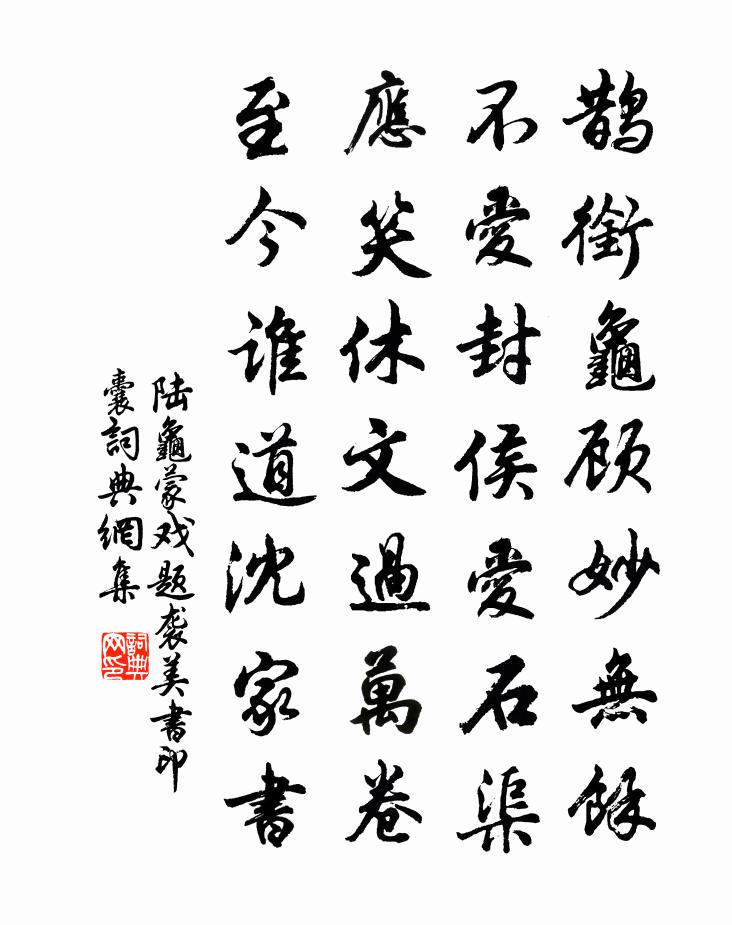 鹊銜龜顾妙無餘
不愛封侯愛石渠
應笑休文過萬卷
至今誰道沈家書
陆龜蒙戏题袭美書印
囊詞典網集
詞典
网印